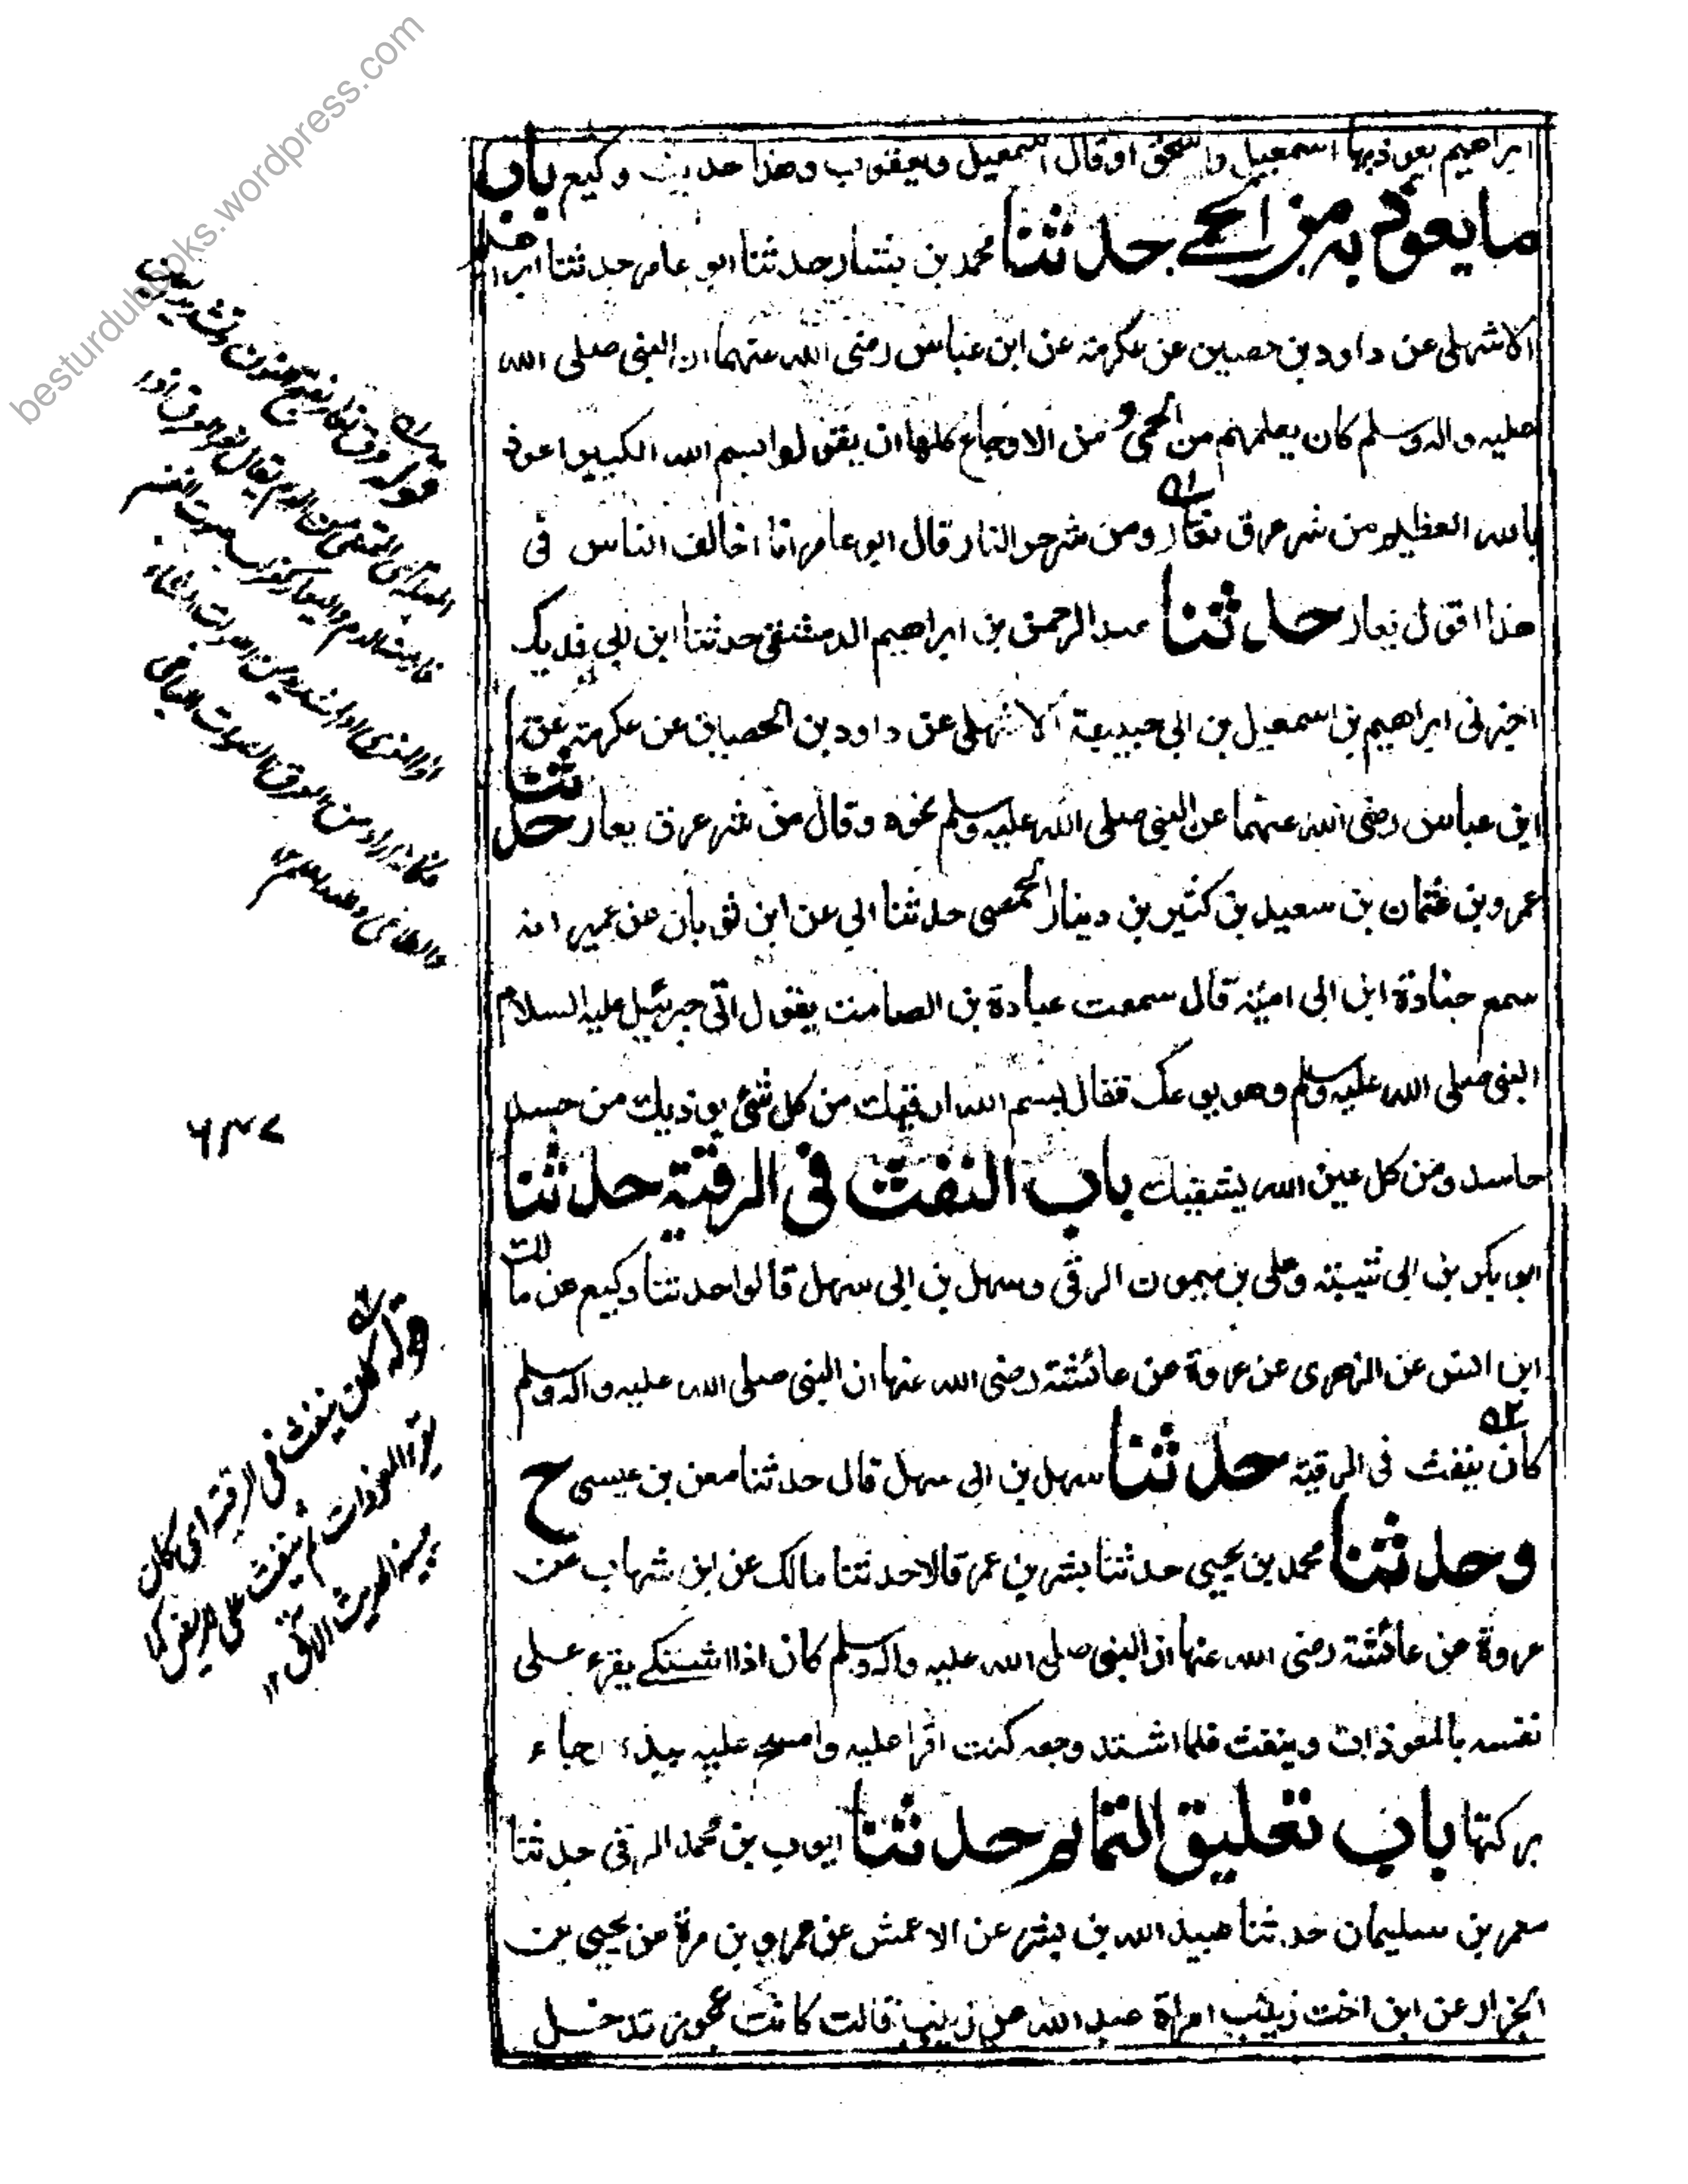 ابراهيم يعوذ بها اسمعيل واسحق او قال اسمعيل ويعقوب وهذا حديث وكيع باب
ما يعوذ به من الحمى حدثنا محمد بن بشار حدثنا ابو عامر حدثنا ابراهيم
الاشهلى عن داود بن حصين عن عكرمة عن ابن عباس رضى الله عنهما ان النبى صلى الله
عليه واله وسلم كان يعلمهم من الحمى و من الاوجاع كلها ان يقولوا بسم الله الكبير اعوذ
بالله العظيم من شر عرق نعار ومن شر حر النار قال ابو عامر انا اخالف الناس فى
هذا اقول يعار حدثنا عبد الرحمن بن ابراهيم الدمشقى حدثنا ابن ابى فديك
اخبرنى ابراهيم بن اسمعيل بن ابى حبيبة الاشهلى عن داود بن الحصين عن عكرمة عن
ابن عباس رضى الله عنهما عن النبى صلى الله عليه وسلم نحوه وقال من شر عرق يعار حدثنا
عمرو بن عثمان بن سعيد بن كثير بن دينار الحمصى حدثنا ابى عن ابن ثوبان عن عمير انه
سمع جنادة ابن ابى امية قال سمعت عبادة بن الصامت يقول اتى جبرئيل عليه السلام
النبى صلى الله عليه وسلم وهو يوعك فقال بسم الله ارقيك من كل شئ يوذيك من حسد
حاسد ومن كل عين الله يشفيك باب النفث فى الرقية حدثنا
ابو بكر بن ابى شيبة وعلى بن ميمون الرقى وسهل بن ابى سهل قالوا حدثنا وكيع عن مالك
ابن انس عن الزهرى عن عروة عن عائشة رضى الله عنها ان النبى صلى الله عليه واله وسلم
كان ينفث فى الرقية حدثنا سهل بن ابى سهل قال حدثنا معن بن عيسى ح
وحدثنا محمد بن يحيى حدثنا بشر بن عمر قالا حدثنا مالك عن ابن شهاب عن
عروة عن عائشة رضى الله عنها ان النبى صلى الله عليه واله وسلم كان اذا اشتكى يقرء على
نفسه بالمعوذات وينفث فلما اشتد وجعه كنت اقرا عليه وامسح عليه بيده رجاء
بركتها باب تعليق التمائم حدثنا ايوب بن محمد الرقى حدثنا
معمر بن سليمان حدثنا عبيد الله بن بشر عن الاعمش عن عمرو بن مرة عن يحيى بن
الجزار عن ابن اخت زينب امراة عبد الله عن زينب قالت كانت عجوز تدخل
قوله عرق نعار
٦٣٧
قوله كان ينفث فى الرقية اى كان
يقرء المعوذات ثم ينفث على المريض كما
يبينه الحديث الاتى ١٢
besturdubooks.wordpress.com